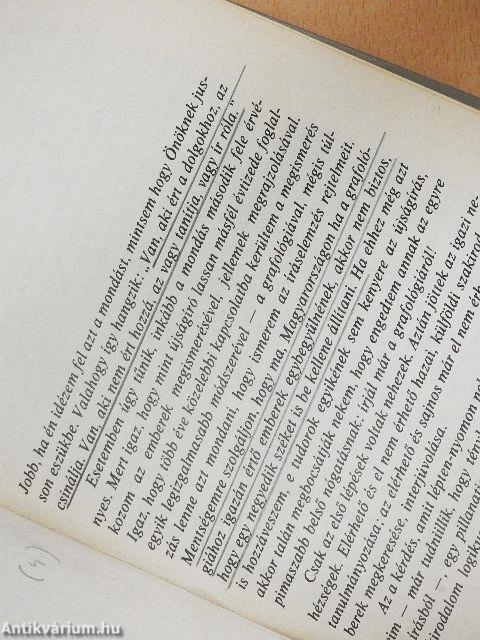 Jobb, ha én idézem fel azt a mondást, mintsem hogy Önöknek jus-
son eszükbe. Valahogy így hangzik: „Van, aki ért a dolgokhoz, az
csinálja. Van, aki nem ért hozzá, az vagy tanítja, vagy ír róla.”
Esetemben úgy tűnik, inkább a mondás második fele érvé-
nyes. Mert igaz, hogy mint újságíró lassan másfél évtizede foglal-
kozom az emberek megismerésével, jellemek megrajzolásával.
Igaz, hogy több éve közelebbi kapcsolatba kerültem a megismerés
egyik legizgalmasabb módszerével – a grafológiával, mégis túl-
zás lenne azt mondani, hogy ismerem az íráselemzés rejtelmeit.
Mentségemre szolgáljon, hogy ma, Magyarországon ha a grafoló-
giához igazán értő emberek egybegyűlnének, akkor nem biztos,
hogy egy negyedik széket is be kellene állítani. Ha ehhez még azt
is hozzáveszem, e tudorok egyikének sem kenyere az újságírás,
akkor talán megbocsátják nekem, hogy engedtem annak az egyre
pimaszabb belső nógatásnak: írjál már a grafológiáról!
Csak az első lépések voltak nehezek. Aztán jövek az igazi ne-
hézségek. Elérhető és el nem érhető hazai, külföldi szakirod
tanulmányozása, az elérhető és sajnos már el nem érh
berek megkeresése, interjúvolása.
Az a kérdés, amit lépten-nyomon nek
im – már tudniillik, hogy tény
rásból – egy pillanat
rodalom logiku
(4)
Antikvárium.hu